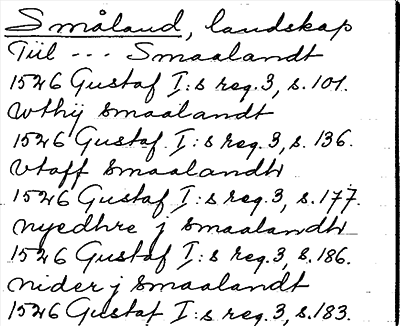 Småland, landskap
Tiil --- Smaalandt
1526 Gustaf I:s reg. 3, s. 101.
wthij Smaalandt
1526 Gustaf I:s reg. 3, s. 136.
vtaff Smaalandh
1526 Gustaf I:s reg. 3, s. 177.
nyedhre j Smaalandh
1526 Gustaf I:s reg. 3, s. 186.
nider j Smaalandt
1526 Gustaf I:s reg. 3, s. 183.